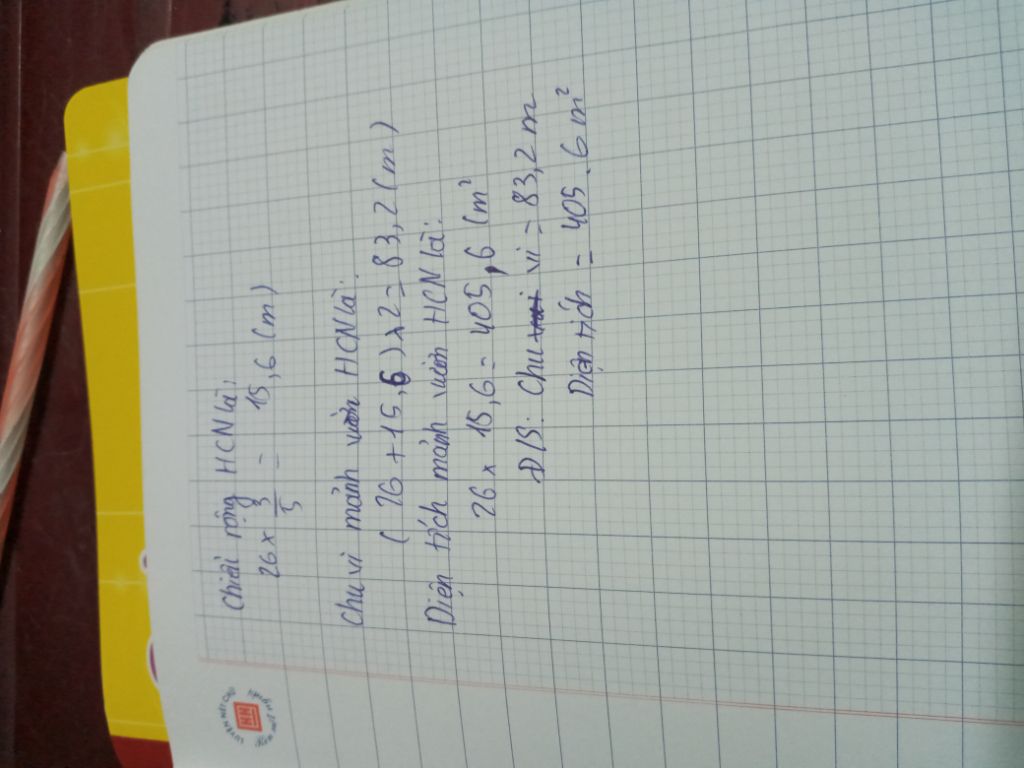 Chiều rộng HCN là:
26 x 3/5 = 15,6 (m)
Chu vi mảnh vườn HCN là:
( 26 + 15,6 ) x 2 = 83,2 (m)
Diện tích mảnh vườn HCN là:
26 x 15,6 = 405,6 (m²
Đ/S: Chu vi = 83,2 m
Diện tích = 405.6 m²
HN